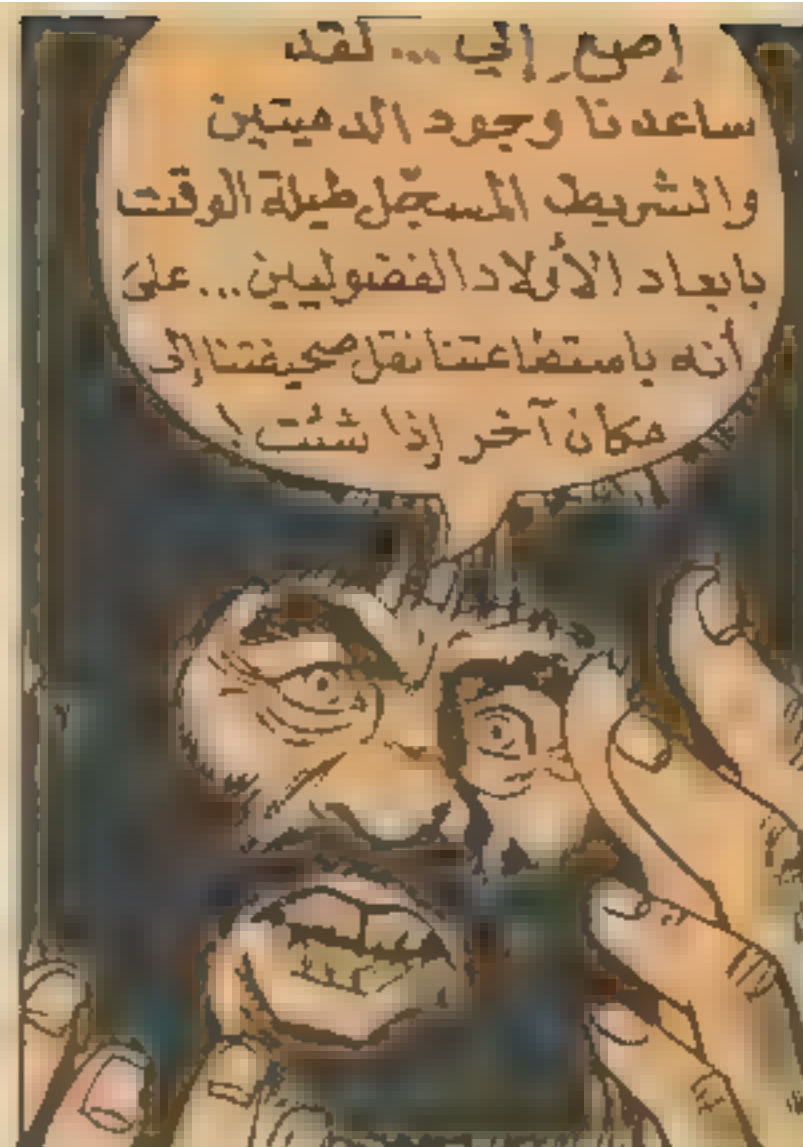 إصغ إلي ... لقد
ساعدنا وجود الدميتين
والشريط المسجّل طيلة الوقت
بابعاد الأولاد الفضوليين... على
أنه باستطاعتنا نقل صحيفتنا إلى
مكان آخر إذا شئت !